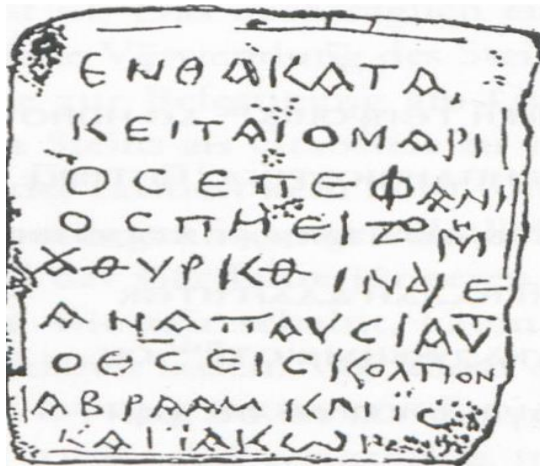 ΕΝΘΑΚΑΤΑ
ΚΕΙΤΑΙΟΜΑΡΙ
ΟϹΕΠΕΦΑΝΙ
ΟϹΠΗΕΙΖΟΜ
ΑΘΥΡΚΘ ΙΝΔ/Ε
ΑΝΑΠΑΥϹΙΑΥΤ
ΟΘ̅ϹΕΙϹΚΟΛΠΟΝ
ΑΒΡΑΑΜ
ΚΑΙΙΑΚΩ